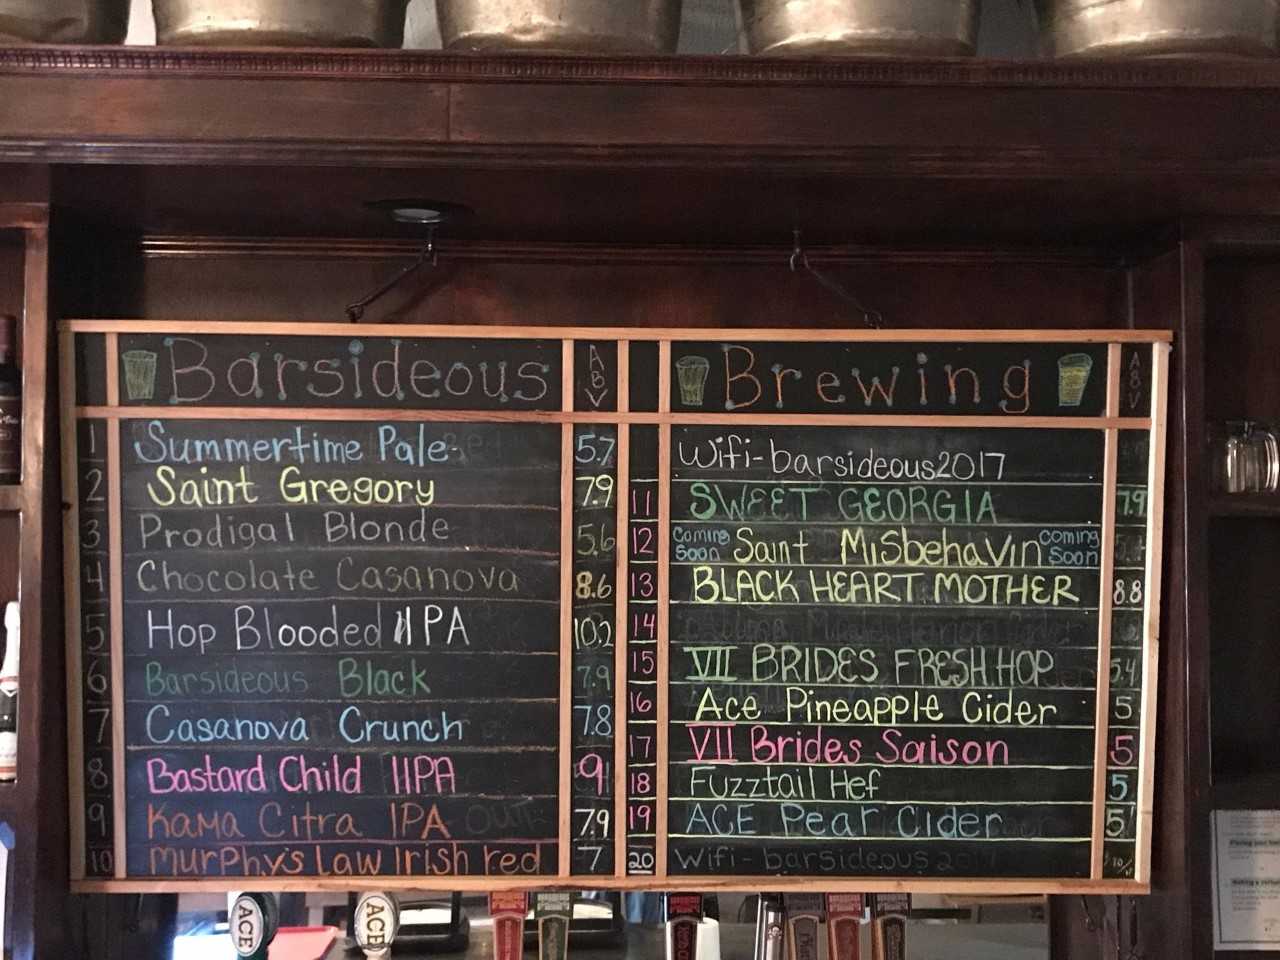 Barsideous
ABV
1 Summertime Pale 5.7
2 Saint Gregory 7.9
3 Prodigal Blonde 5.6
4 Chocolate Casanova 8.6
5 Hop Blooded IIPA 10.2
6 Barsideous Black 7.9
7 Casanova Crunch 7.8
8 Bastard Child IIPA 9
9 Kama Citra IPA OUT 7.9
10 Murphy's Law Irish red 7
Brewing
ABV
Wifi-barsideous2017
11 SWEET GEORGIA 7.9
12 Coming Soon Saint MisbehaVin coming Soon
13 BLACK HEART MOTHER 8.8
14
15 VII BRIDES FRESH HOP 5.4
16 Ace Pineapple Cider 5
17 VII Brides Saison 5
18 Fuzztail Hef 5
19 ACE Pear Cider 5
20 Wifi-barsideous2017
ACE
ACE